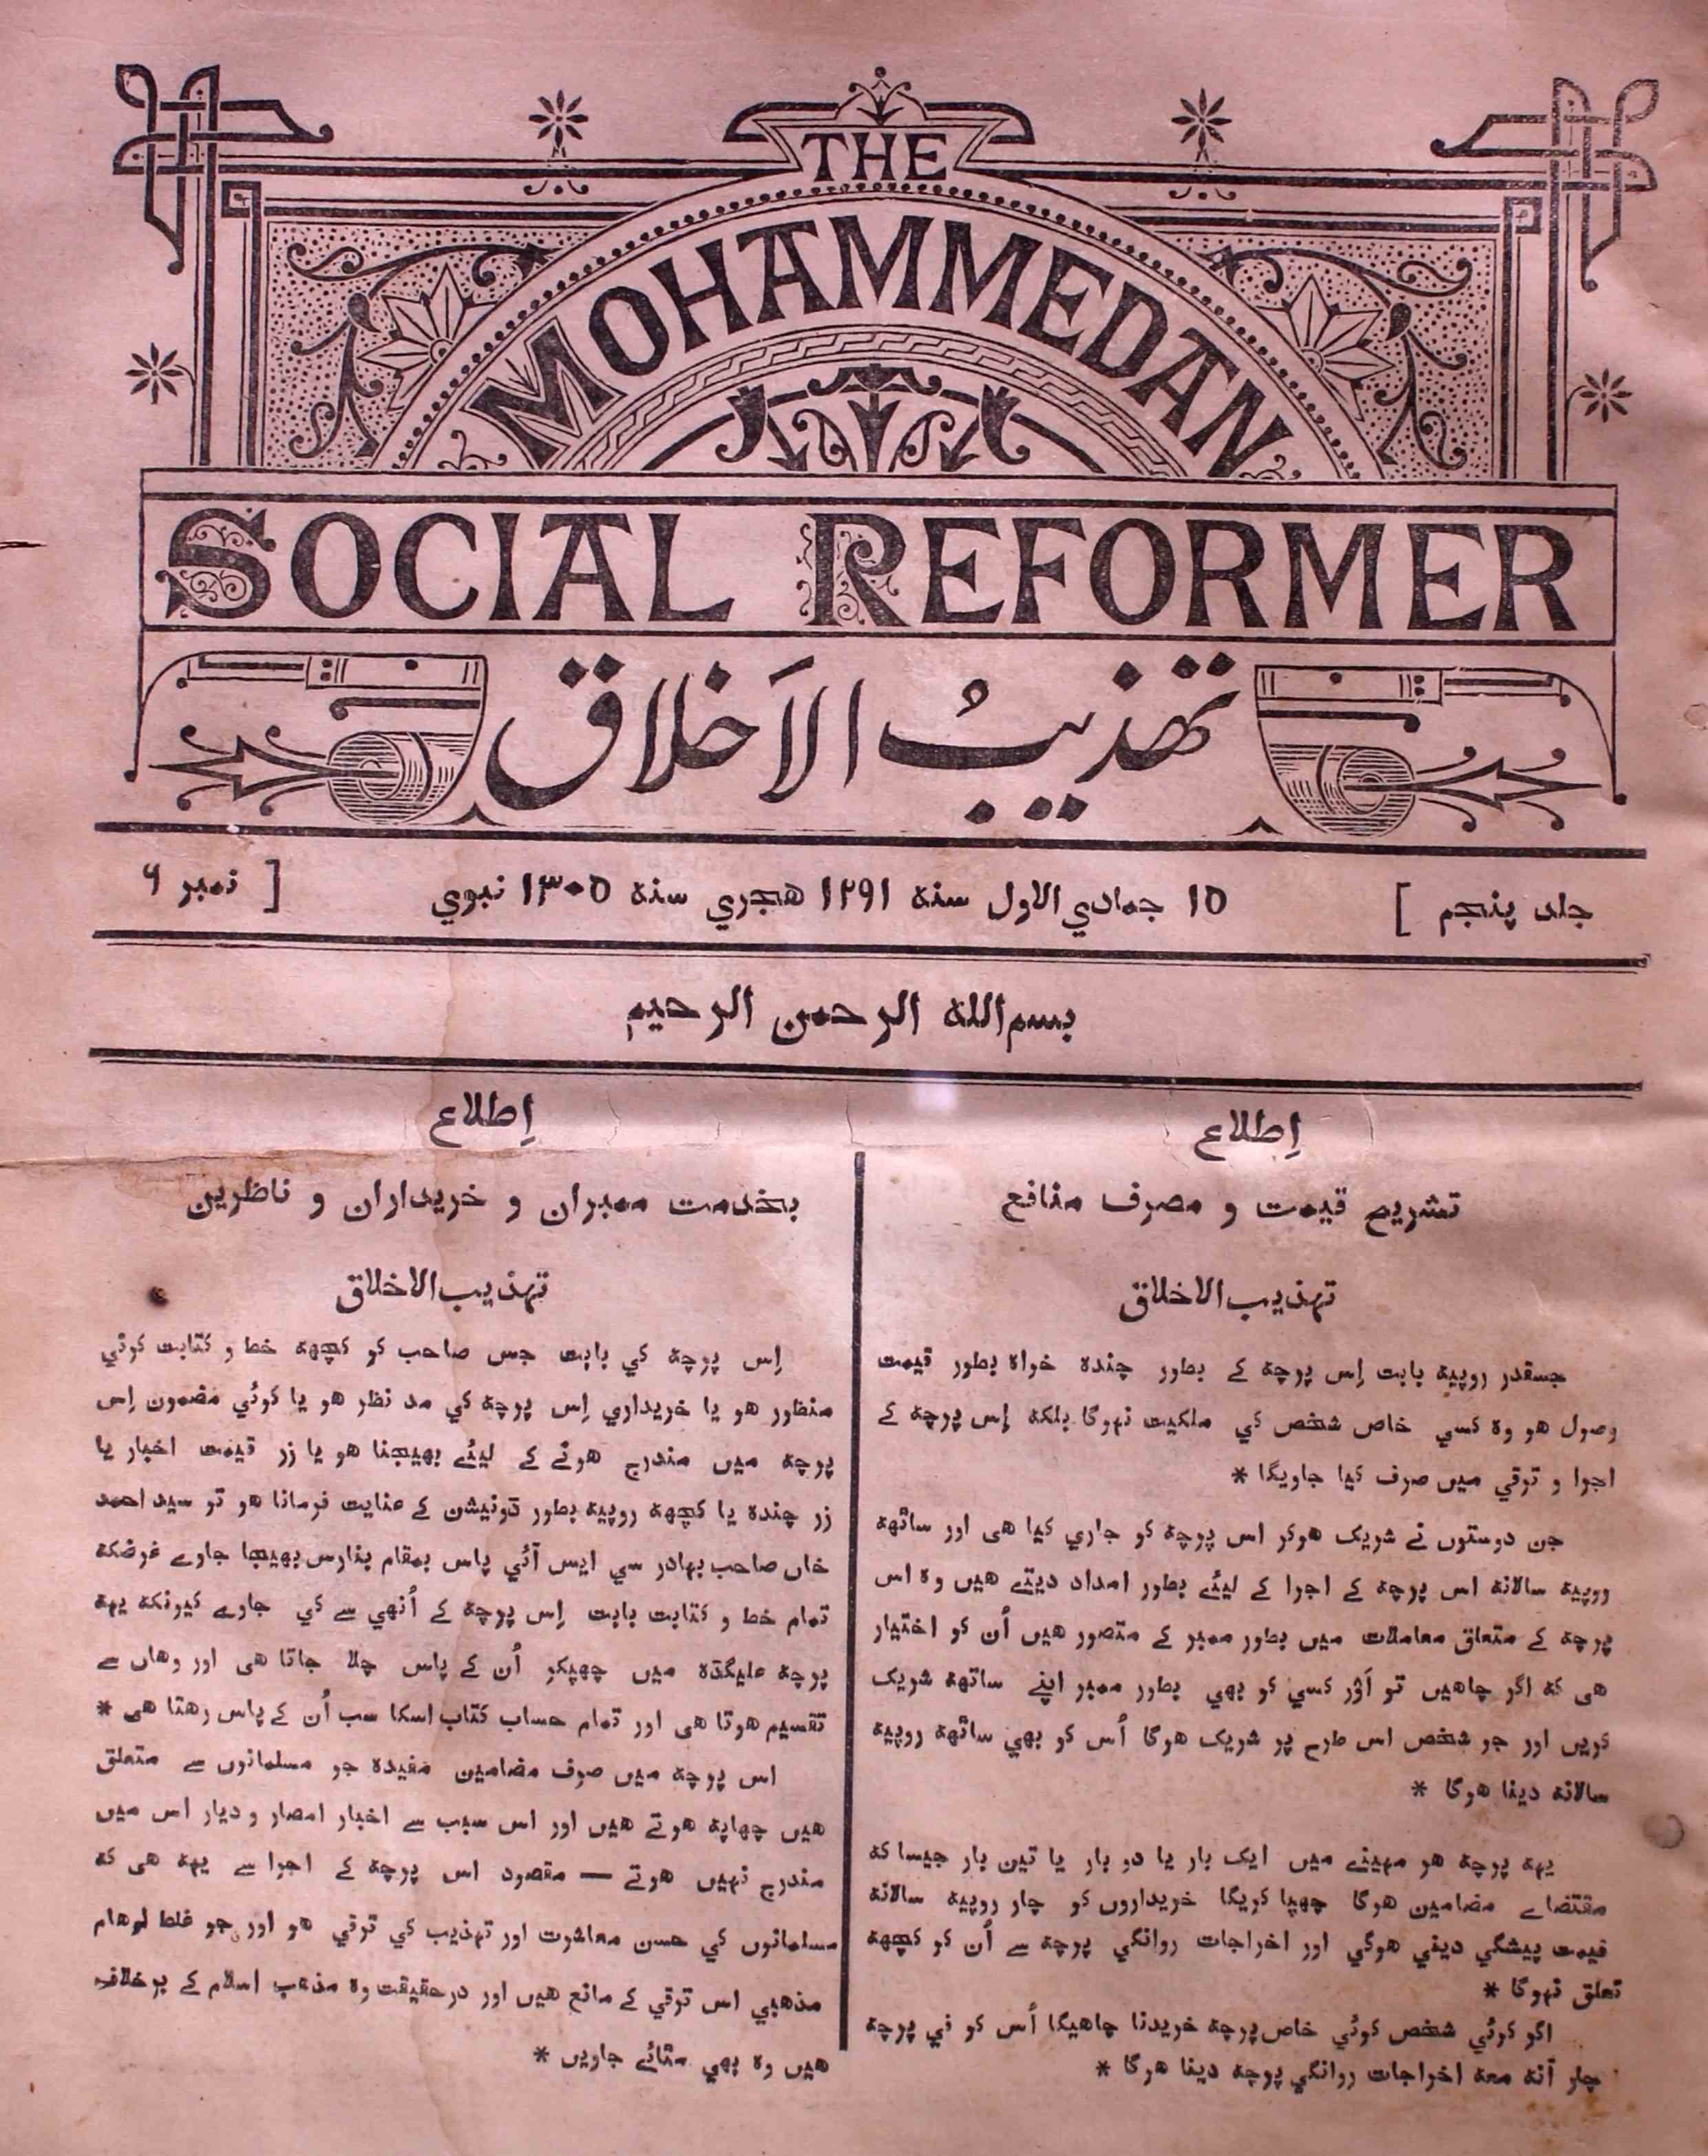 THE
MOHAMMEDAN
SOCIAL REFORMER
تهذيبُ الاَخلاق
جلد پنجم ] ١٥ جمادي الاول سنه ١٢٩١ هجري سنه ١٣٠٥ نبوي [ نمبر ٦
بسم الله الرحمن الرحيم
اِطلاع
تشريح قيمت و مصرف منافع
تهذيب الاخلاق
جسقدر روپيه بابت اِس پرچه کے بطور چنده خواه بطور قيمت
وصول هو وه کسي خاص شخص کي ملکيت نهوگا بلکه اِس پرچه کے
اجرا و ترقي ميں صرف کيا جاويگا *
جن دوستوں نے شريک هوکر اس پرچه کو جاري کيا هی اور ساٹهه
روپيه سالانه اس پرچه کے اجرا کے ليئے بطور امداد ديتے هيں وه اس
پرچه کے متعلق معاملات ميں بطور ممبر کے متصور هيں اُن کو اختيار
هی که اگر چاهيں تو اَوْر کسي کو بهي بطور ممبر اپنے ساتهه شريک
کريں اور جو شخص اس طرح پر شريک هوگا اُس کو بهي ساٹهه روپيه
سالانه دينا هوگا *
يهه پرچه هر مهينے ميں ايک بار يا دو بار يا تين بار جيسا که
مقتضاے مضامين هوگا چهپا کريگا خريداروں کو چار روپيه سالانه
قيمت پيشگي ديني هوگي اور اخراجات روانگي پرچه سے اُن کو کچهه
تعلق نهوگا *
اگر کوئي شخص کوئي خاص پرچه خريدنا چاهيگا اُس کو في پرچه
چار آنه معه اخراجات روانگي پرچه دينا هوگا *
اِطلاع
بخدمت ممبران و خريداران و ناظرين
تهذيب الاخلاق
اِس پرچه کي بابت جس صاحب کو کچهه خط و کتابت کرني
منظور هو يا خريداري اِس پرچه کي مد نظر هو يا کوئي مضمون اِس
پرچه ميں مندرج هونے کے ليئے بهيجنا هو يا زر قيمت اخبار يا
زر چنده يا کچهه روپيه بطور ڈونيشن کے عنايت فرمانا هو تو سيد احمد
خاں صاحب بهادر سي ايس آئي پاس بمقام بنارس بهيجا جاوے غرضکه
تمام خط و کتابت بابت اِس پرچه کے اُنهي سے کي جاوے کيونکه يهه
پرچه عليگڈه ميں چهپکر اُن کے پاس چلا جاتا هی اور وهاں سے
تقسيم هوتا هی اور تمام حساب کتاب اسکا سب اُن کے پاس رهتا هی *
اس پرچه ميں صرف مضامين مفيده جو مسلمانوں سے متعلق
هيں چهاپه هوتے هيں اور اس سبب سے اخبار امصار و ديار اس ميں
مندرج نهيں هوتے — مقصود اس پرچه کے اجرا سے يهه هی که
مسلمانوں کي حسن معاشرت اور تهذيب کي ترقي هو اور جو غلط اوهام
مذهبي اس ترقي کے مانع هيں اور درحقيقت وه مذهب اسلام کے برخلاف
هيں وه بهي مٹائے جاويں *